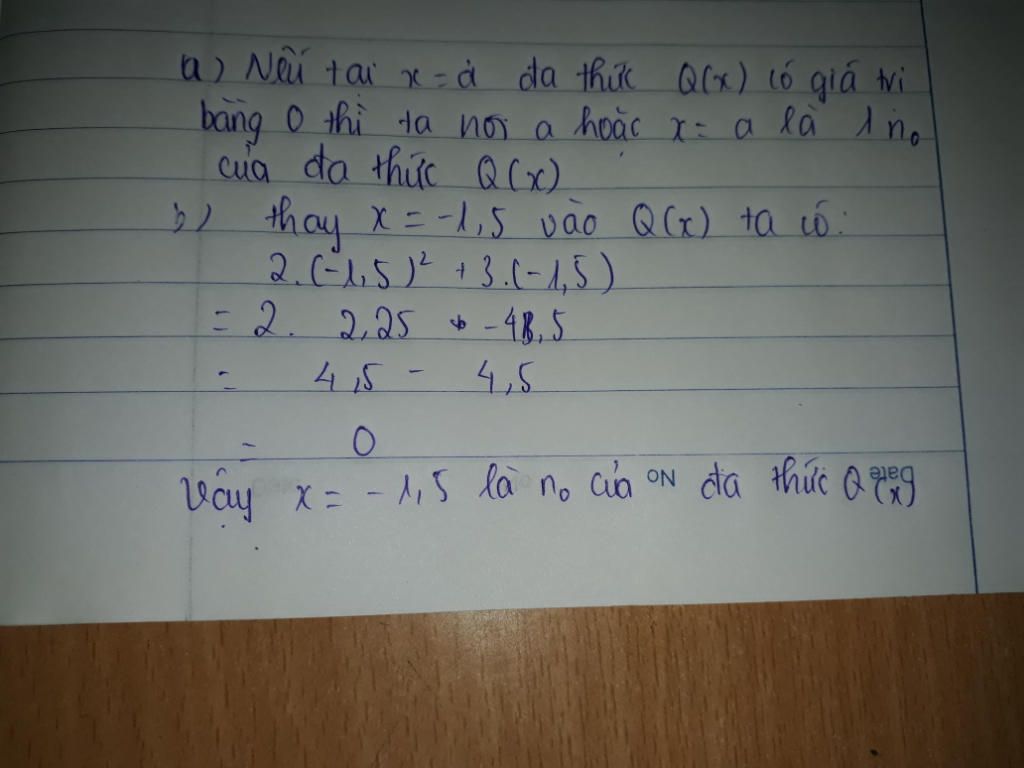 a) Nếu tại x = a đa thức Q(x) có giá trị
bằng 0 thì ta nói a hoặc x = a là 1 n₀
của đa thức Q(x)
b) thay x = -1,5 vào Q(x) ta có:
2.(-1,5)² + 3.(-1,5)
= 2. 2,25 + -4,5
= 4,5 - 4,5
= 0
Vậy x = -1,5 là n₀ của NO đa thức Q(x) Date